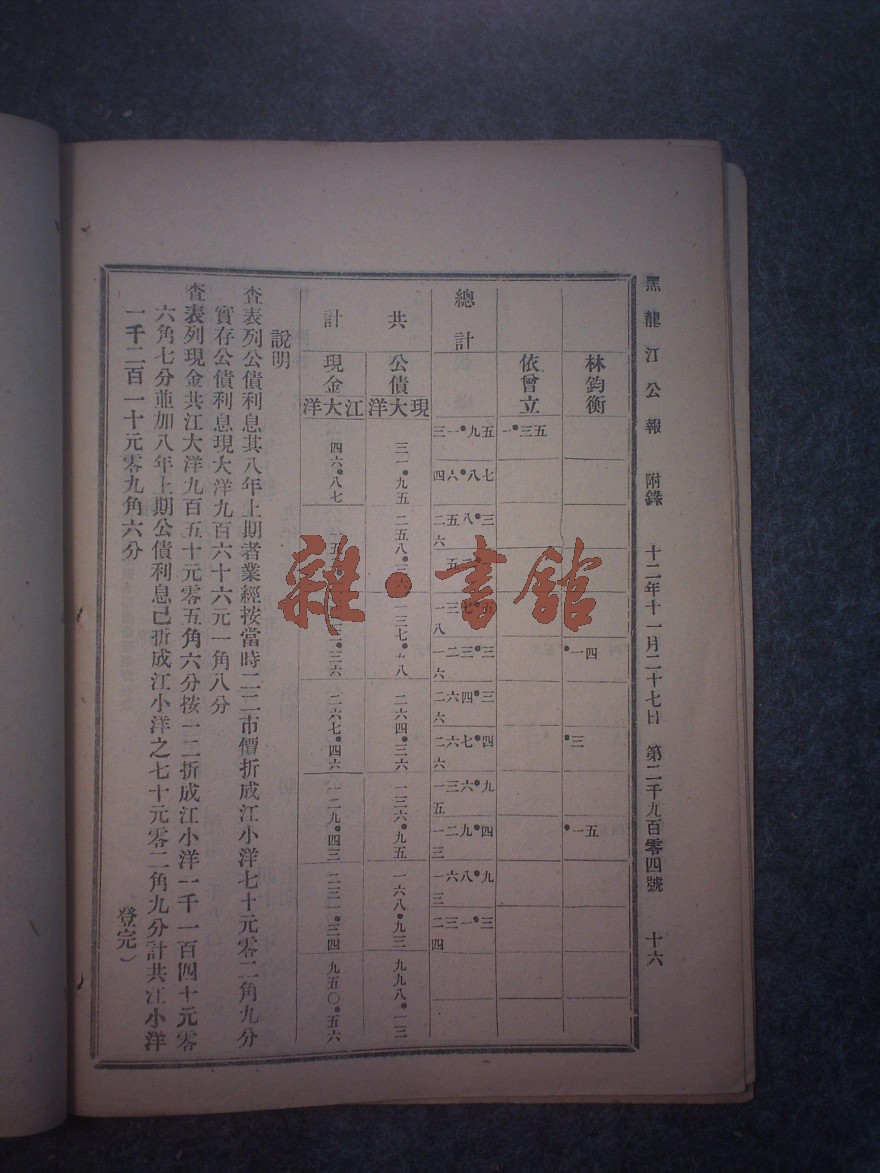 黑龍江公報　附錄　十二年十一月二十七日　第二千九百零四號　十六
林鈞衡
四一•
三•
五一•
依曾立
五三•一
總計
五九•一三
七八•六四
三•八五二六
三•三二一六
三•四六二六
四•七六二六
九•六三一五
四•九二一三
九•八六一三
三•一三二四
共計
公債現大洋
三一•九五
二五八•三六
二六四•三六
一三六•九五
一六八•九三
九九八•一三
現金江大洋
四六•八七
二六七•四六
一二九•四三
二三一•三四
九五〇•五六
說明
查表列公債利息其八年上期者業經按當時二二市價折成江小洋七十元零二角九分
實存公債利息現大洋九百六十六元一角八分
查表列現金共江大洋九百五十元零五角六分按一二折成江小洋一千一百四十元零
六角七分並加八年上期公債利息已折成江小洋之七十元零二角九分計共江小洋
一千二百一十元零九角六分
登完）
雜•書館